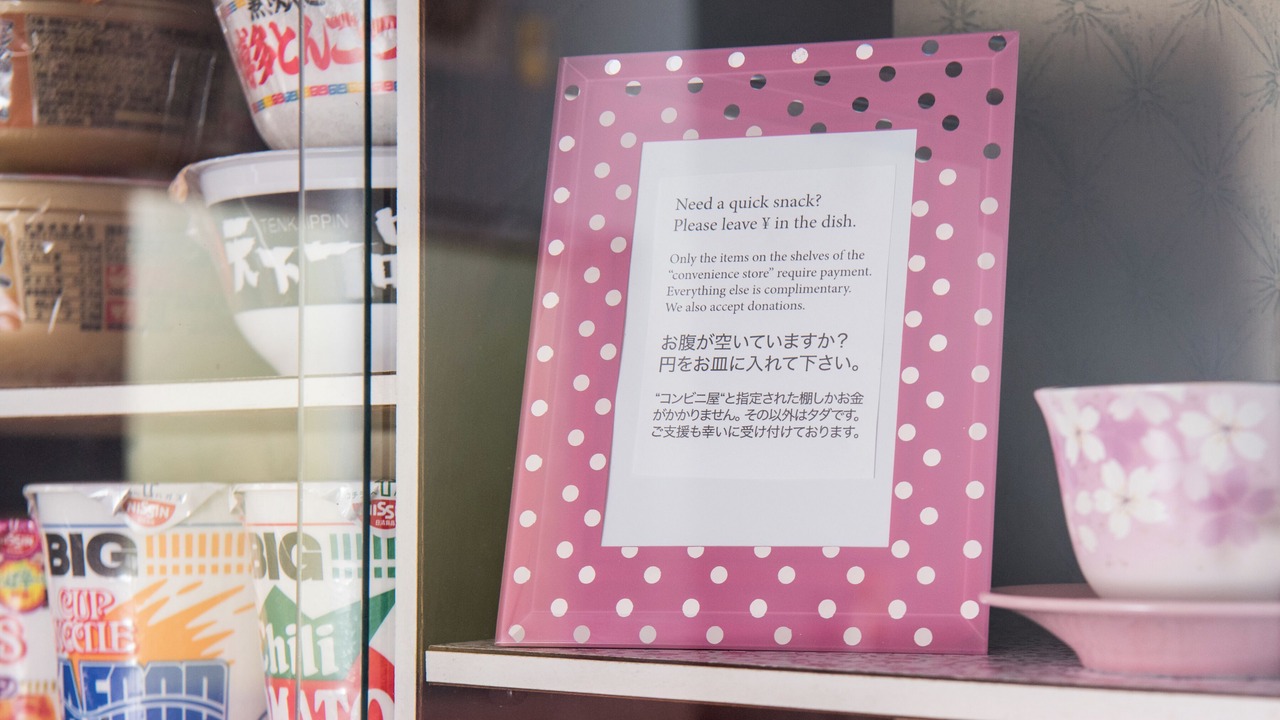 博多とんこつ
TENKAIPPIN
天下一品
NISSIN
NISSIN
BIG
BIG
CUP
NOODLE
SEAFOOD
Chili
TOMATO
Need a quick snack?
Please leave ¥ in the dish.
Only the items on the shelves of the
“convenience store” require payment.
Everything else is complimentary.
We also accept donations.
お腹が空いていますか？
円をお皿に入れて下さい。
“コンビニ屋“と指定された棚しかお金
がかかりません。その以外はタダです。
ご支援も幸いに受け付けております。